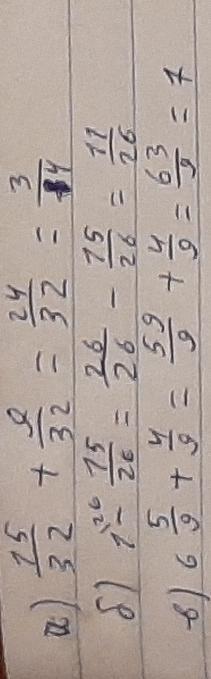 а) 15/32 + 9/32 = 24/32 = 3/4
б) 1^26 - 15/26 = 26/26 - 15/26 = 11/26
в) 6 5/9 + 4/9 = 59/9 + 4/9 = 63/9 = 7